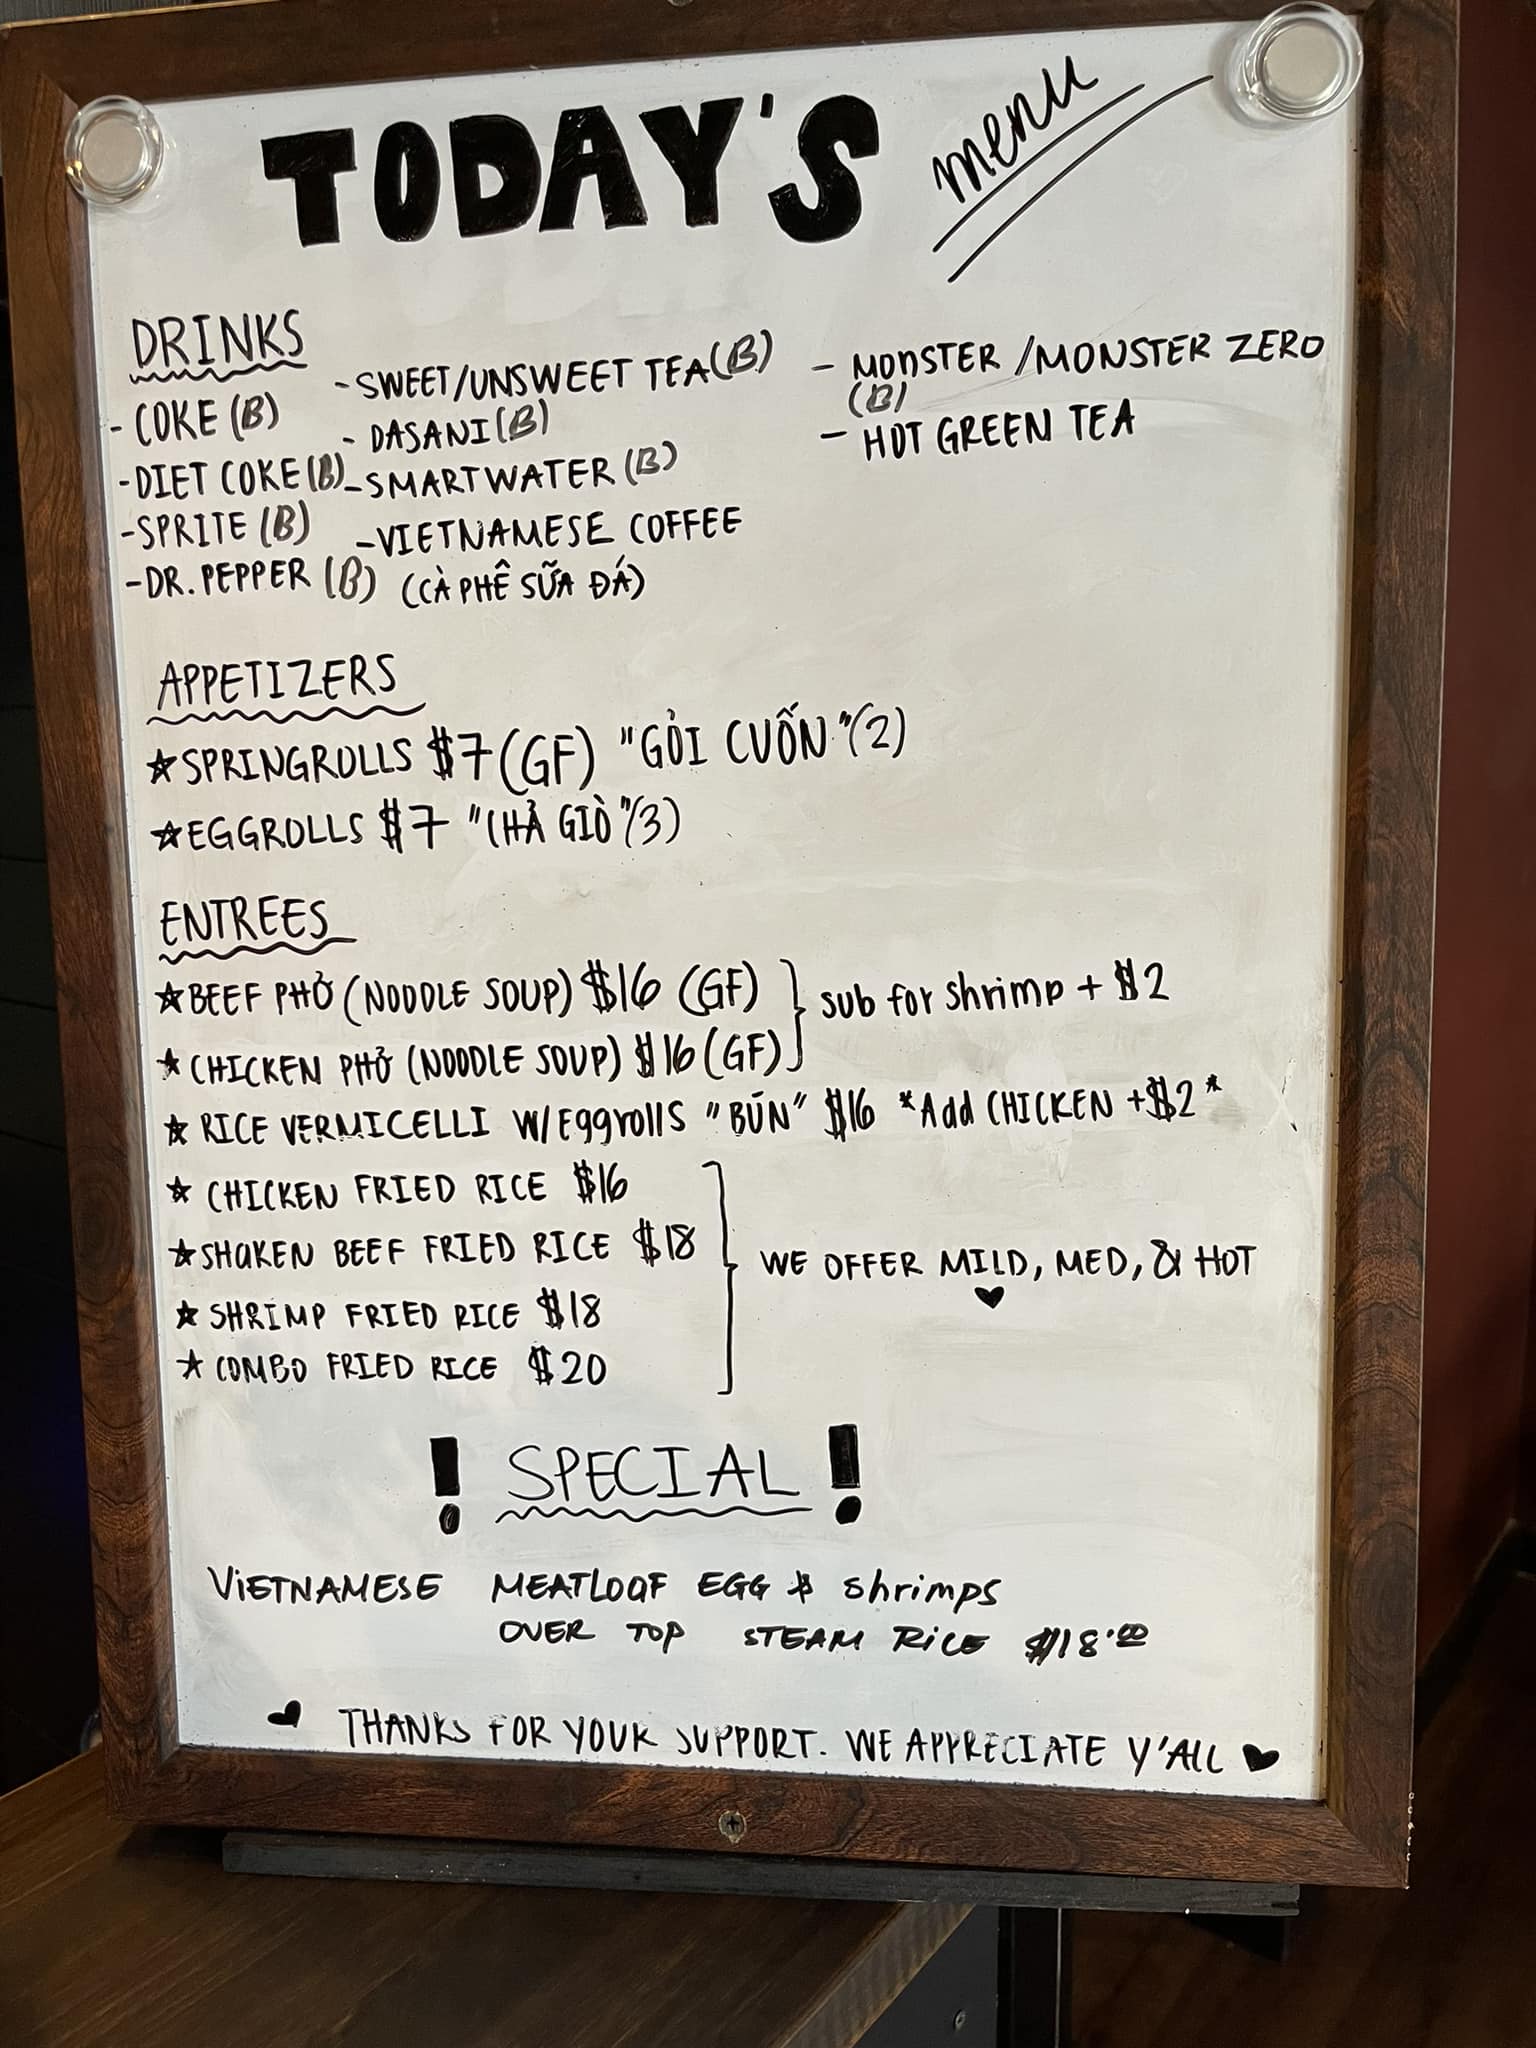 TODAY'S menu
DRINKS
- COKE (B)
- DIET COKE (B)
- SPRITE (B)
- DR. PEPPER (B)
- SWEET/UNSWEET TEA (B)
- DASANI (B)
- SMARTWATER (B)
- VIETNAMESE COFFEE
(CÀ PHÊ SỮA ĐÁ)
- MONSTER / MONSTER ZERO
(B)
- HOT GREEN TEA
APPETIZERS
☆ SPRINGROLLS $7 (GF) "GỎI CUỐN" (2)
☆ EGGROLLS $7 "CHẢ GIÒ" (3)
ENTREES
☆ BEEF PHỞ (NOODLE SOUP) $16 (GF)
☆ CHICKEN PHỞ (NOODLE SOUP) $16 (GF)
sub for shrimp + $2
☆ RICE VERMICELLI W/ Eggrolls "BÚN" $16 *Add CHICKEN + $2*
☆ CHICKEN FRIED RICE $16
☆ SHAKEN BEEF FRIED RICE $18
☆ SHRIMP FRIED RICE $18
☆ COMBO FRIED RICE $20
WE OFFER MILD, MED, & HOT
♥
! SPECIAL !
VIETNAMESE MEATLOAF EGG & shrimps
OVER TOP STEAM RICE $18.00
♥ THANKS FOR YOUR SUPPORT. WE APPRECIATE Y'ALL ♥